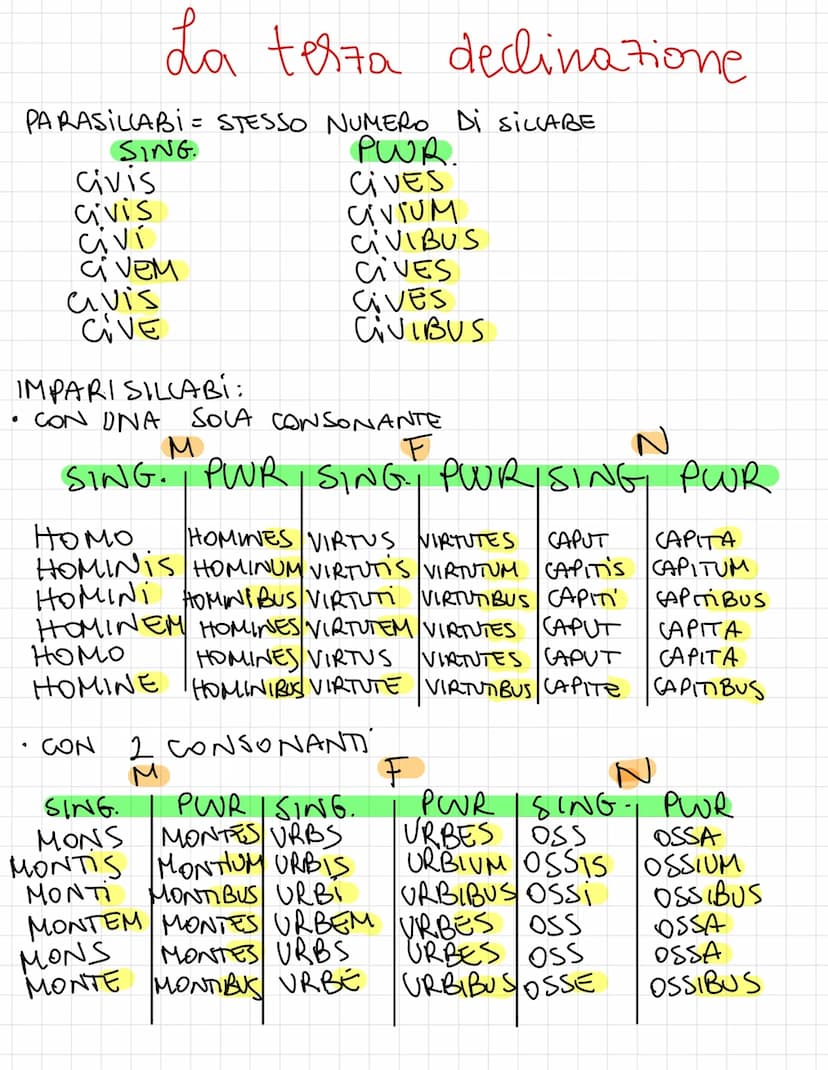 La terza declinazione
PARASILLABI = STESSO NUMERO DI SILLABE
SING. PLUR.
CIVIS CIVES
CIVIS CIVIUM
CIVI CIVIBUS
CIVEM CIVES
CIVIS CIVES
CIVE CIVIBUS
IMPARISILLABI:
• CON UNA SOLA CONSONANTE
M F N
SING. PLUR SING. PLUR SING PLUR
HOMO HOMINES VIRTUS VIRTUTES CAPUT CAPITA
HOMINIS HOMINUM VIRTUTIS VIRTUTUM CAPITIS CAPITUM
HOMINI HOMINIBUS VIRTUTI VIRTUTIBUS CAPITI CAPITIBUS
HOMINEM HOMINES VIRTUTEM VIRTUTES CAPUT CAPITA
HOMO HOMINES VIRTUS VIRTUTES CAPUT CAPITA
HOMINE HOMINIBUS VIRTUTE VIRTUTIBUS CAPITE CAPITIBUS
• CON 2 CONSONANTI
M F N
SING. PLUR SING. PLUR SING. PLUR
MONS MONTES URBS URBES OSS OSSA
MONTIS MONTIUM URBIS URBIUM OSSIS OSSIUM
MONTI MONTIBUS URBI URBIBUS OSSI OSSIBUS
MONTEM MONTES URBEM URBES OSS OSSA
MONS MONTES URBS URBES OSS OSSA
MONTE MONTIBUS URBE URBIBUS OSSE OSSIBUS